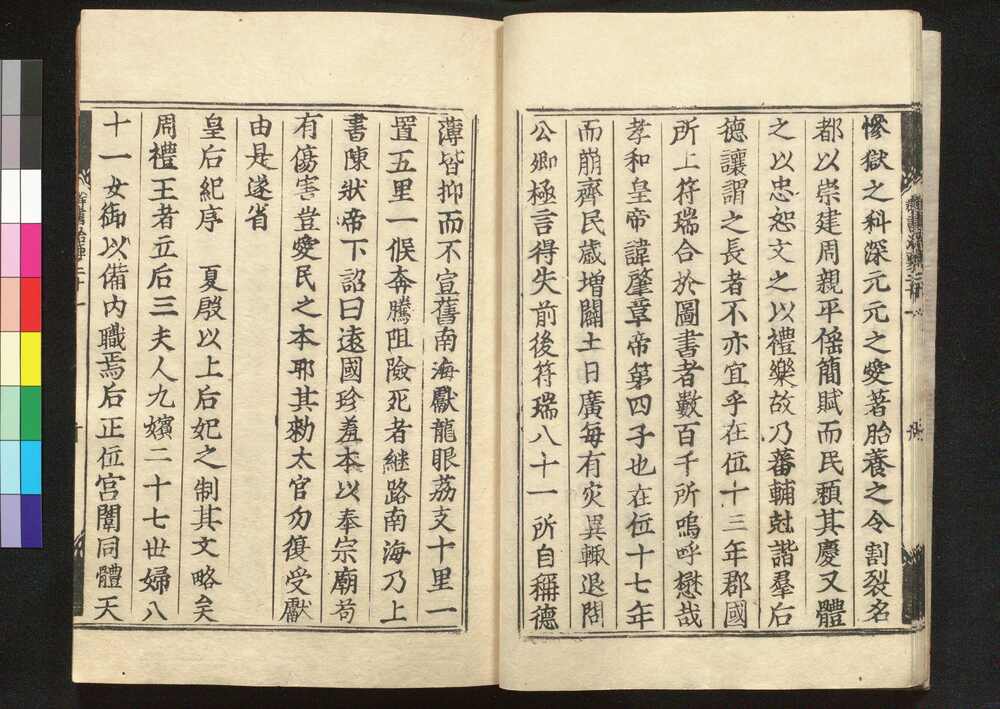 慘獄之科深元元之愛著胎養之令割裂名
都以崇建周親平徭簡賦而民頼其慶又體
之以忠恕文之以禮樂故乃蕃輔尅諧羣后
德讓謂之長者不亦宜乎在位十三年郡國
所上符瑞合於圖書者數百千所嗚呼懋哉
孝和皇帝諱肇章帝第四子也在位十七年
而崩齊民歲增闢土日廣每有灾異輙退問
公卿極言得失前後符瑞八十一所自稱德
薄皆抑而不宣舊南海獻龍眼荔支十里一
置五里一候奔騰阻險死者継路南海乃上
書陳狀帝下詔曰遠國珍羞本以奉宗廟苟
有傷害豈愛民之本耶其勑太官勿復受獻
由是遂省
皇后紀序　夏殷以上后妃之制其文略矣
周禮王者立后三夫人九嬪二十七世婦八
十一女御以備内職焉后正位宮闈同體天